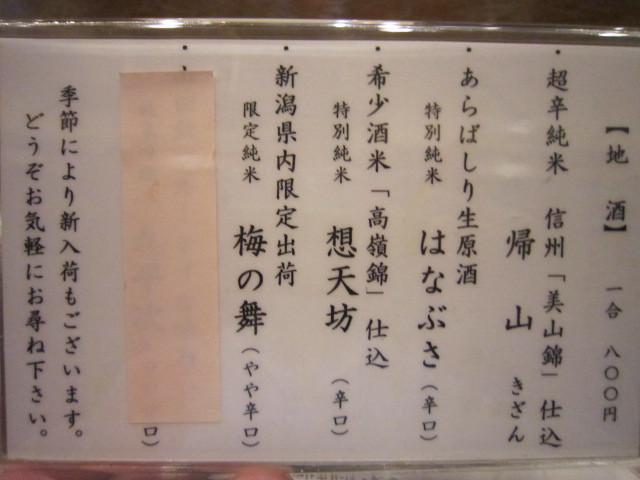 【地酒】 一合 八〇〇円
・超辛純米 信州「美山錦」仕込
帰山 きざん
・あらばしり生原酒
特別純米 はなぶさ（辛口）
・希少酒米「高嶺錦」仕込
特別純米 想天坊（辛口）
・新潟県内限定出荷
限定純米 梅の舞（やや辛口）
・
口）
季節により新入荷もございます。
どうぞお気軽にお尋ね下さい。